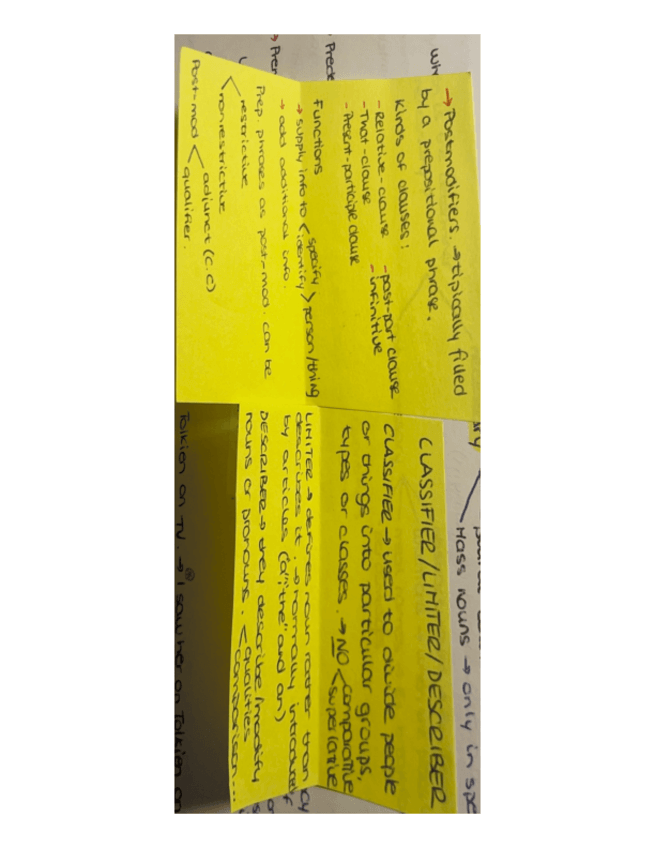 → Postmodifiers. → tipically filled
by a prepositional phrase.
Kinds of clauses:
- Relative-clause - past-part clause
- That-clause - infinitive
- Present-participle clause
Functions
→ supply info to < specify / identify > person/thing
→ add additional info.
Prep. phrases as post-mod. can be
< restrictive
nonrestrictive
Post-mod < adjunct (c.c)
qualifier.
CLASSIFIER/LIMITER/DESCRIBER
CLASSIFIER → used to divide people
or things into particular groups,
types or classes. → NO < comparative
superlative
LIMITER → defines noun rather than
describes it. → normally introduced
by articles ("a", "the" and an)
DESCRIBER → they describe/modify
nouns or pronouns. < qualities
comparison...
Mass nouns → only in
Tolkien on TV. → I saw her on Tolkien on